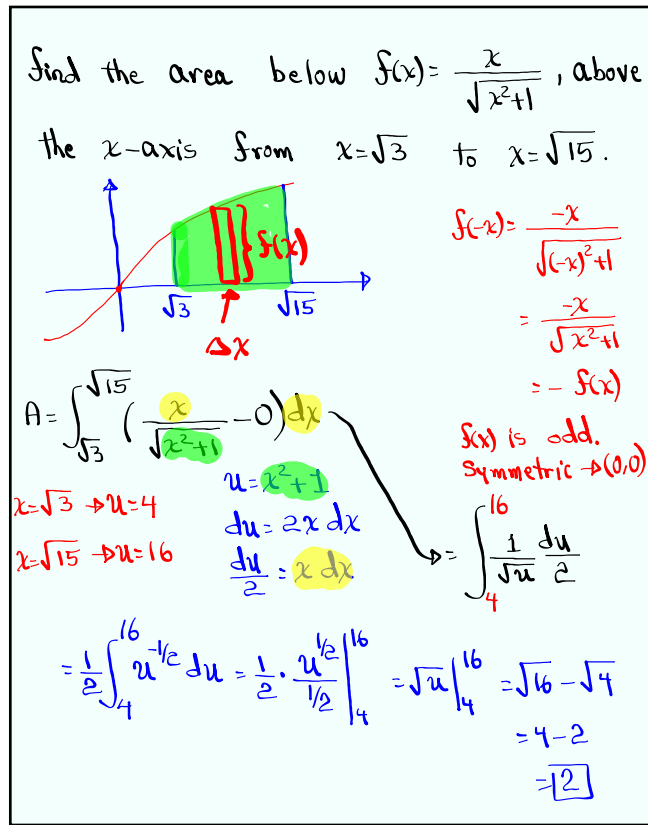 find the area below f(x)= x/√(x²+1) , above
the x-axis from x=√3 to x=√15.
f(x)
√3 √15
Δx
f(-x)= -x/√((-x)²+1)
= -x/√(x²+1)
=- f(x)
f(x) is odd.
Symmetric → (0,0)
A= ∫_√3^√15 ( x/√(x²+1) -0) dx
x=√3 → u=4
x=√15 → u=16
u= x²+1
du= 2x dx
du/2 = x dx
= ∫_4^16 1/√u du/2
= 1/2 ∫_4^16 u^(-1/2) du = 1/2 · u^(1/2)/(1/2) |_4^16 = √u |_4^16 = √16 - √4
= 4-2
= 2